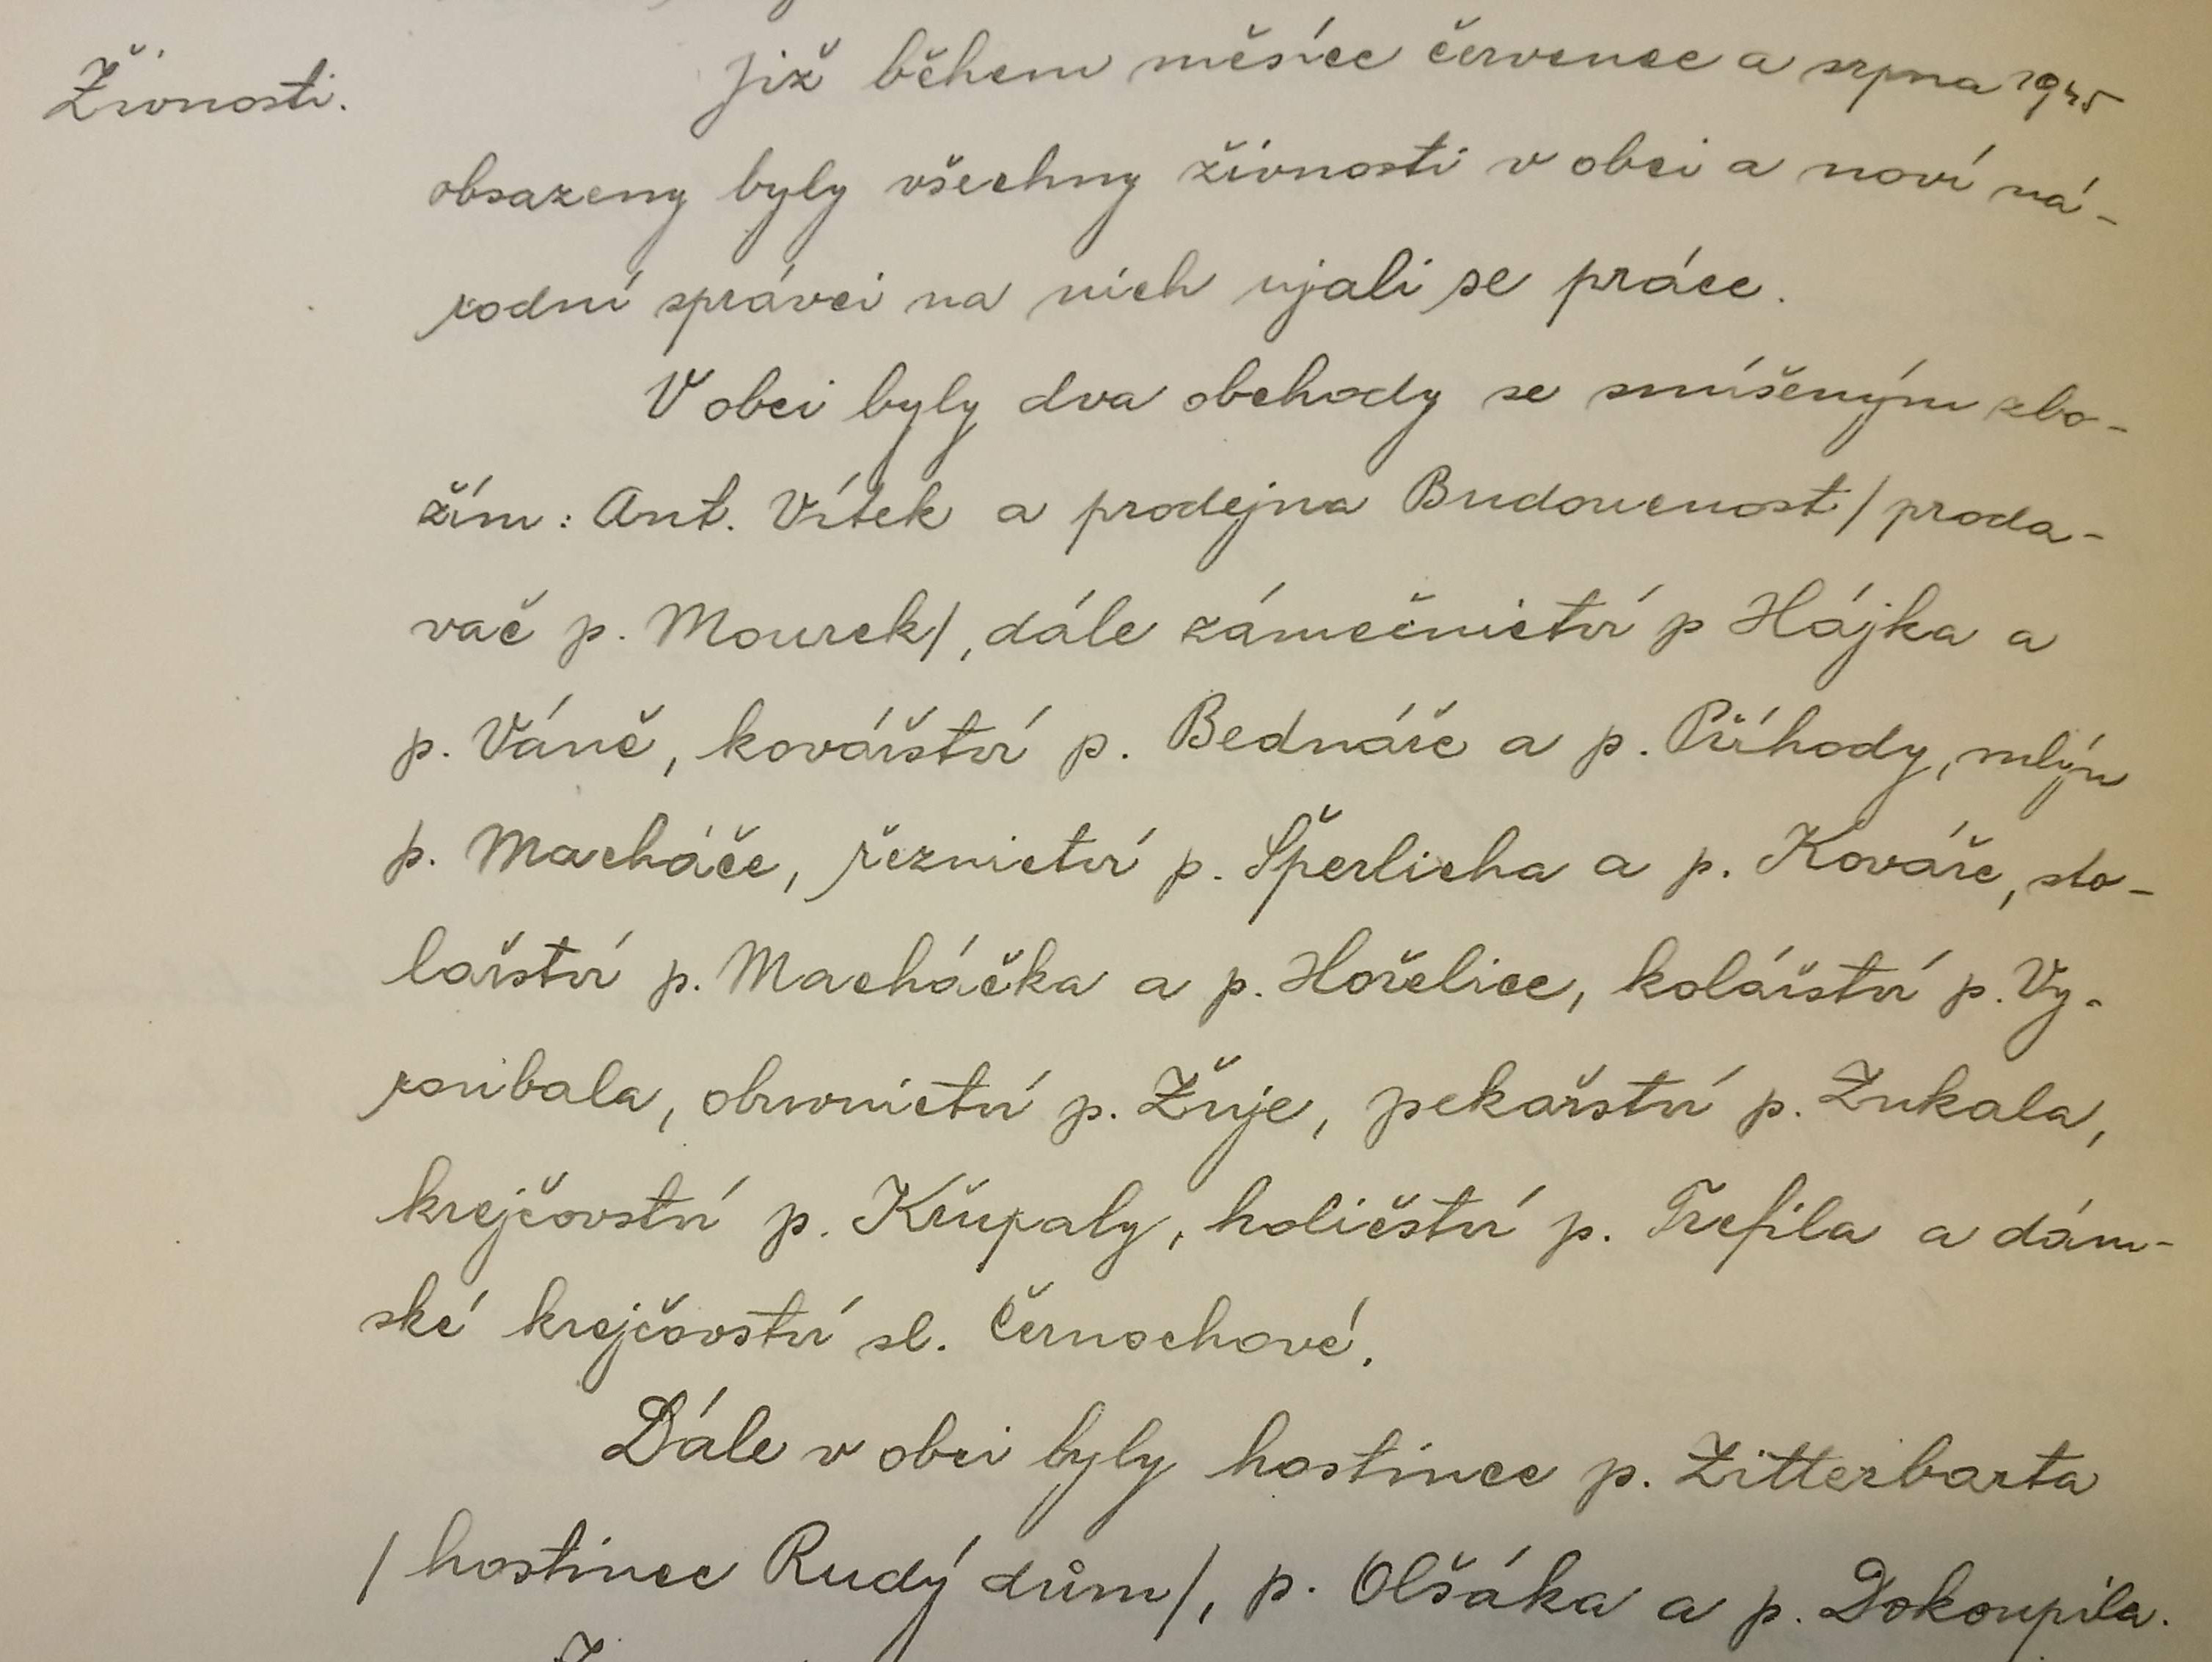 Živnosti.
Již během měsíce července a srpna 1945
obsazeny byly všechny živnosti v obci a noví ná-
rodní správci na nich ujali se práce.
V obci byly dva obchody se smíšeným zbo-
žím: Ant. Vítek a prodejna Budoucnost /proda-
vač p. Mourek/, dále zámečnictví p Hájka a
p. Váně, kovářství p. Bednáře a p. Příhody, mlýn
p. Macháče, řeznictví p. Šperlicha a p. Kováře, sto-
lařství p. Macháčka a p. Hořelice, kolářství p. Vy-
roubala, obuvnictví p. Žůje, pekařství p. Zukala,
krejčovství p. Křupaly, holičství p. Trefila a dám-
ské krejčovství sl. Černochové.
Dále v obci byly hostince p. Zitterbarta
/hostinec Rudý dům/, p. Olšáka a p. Dokoupila.